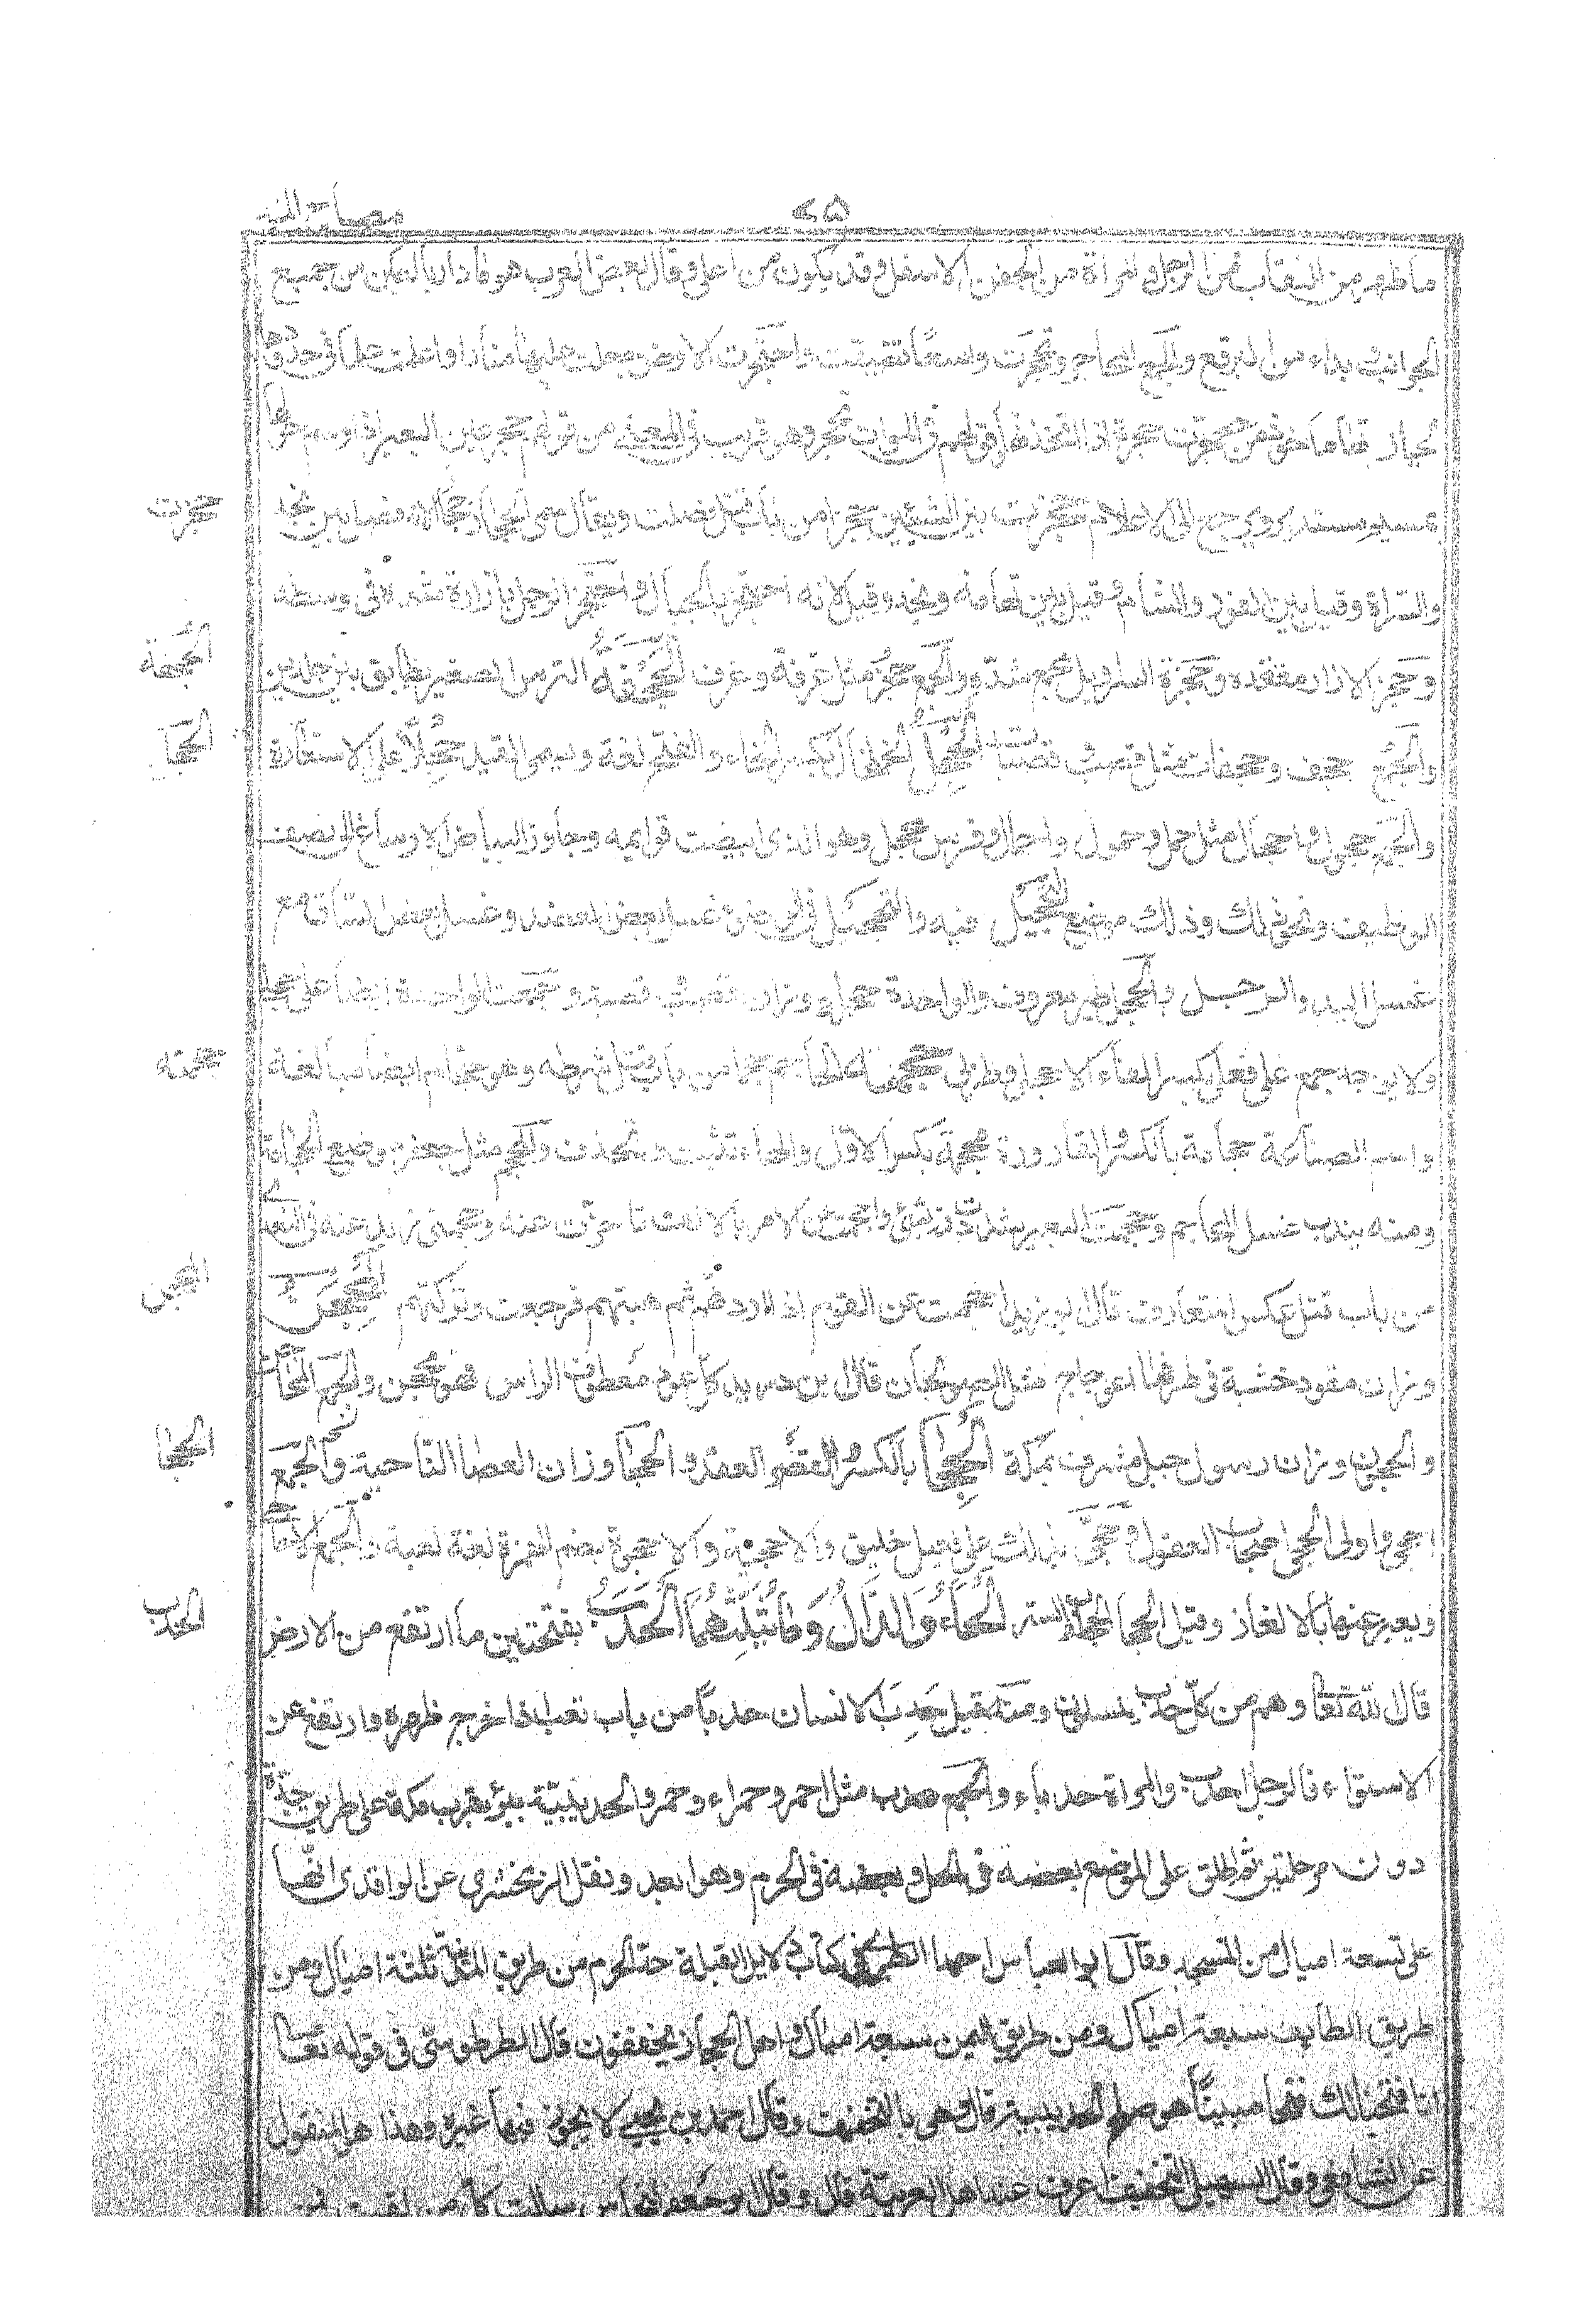 ٧٥
مصباح المنير
ما ظهر من النقاب من الرجل والمراة من الجفن الاسفل وقد يكون من اعلى وقال بعض العرب هو ما دار بالعين من جميع
الجوانب بداء من البرقع والجمع المحاجر وتحجرت واسعا ضيقت واحتجرت الارض جعلت عليها منارا واعلمت علما في حدودها
حجرت حجرة اذا اتخذتها وقولهم في الموات تحجر وهو قريب في المعنى من قولهم حجر عين البعير اذا وسم حولها
بميسم مستدير ويرجع الى الاعلام حجزت بين الشيئين حجزا من باب قتل فصلت ويقال سمى الحجاز حجازا لانه فصل بين نجد
والسراة وقيل بين الغور والشام وقيل بين تهامة ونجد وقيل لانه احتجز بالجبال واحتجز الرجل بازاره شده في وسطه
وحجزة الازار معقده وحجزة السراويل مجمع شده والجمع حجز مثل غرفة وغرف الحجفة الترس الصغير يطارق بين جلدين
والجمع حجف وحجفات مثل قصبة وقصب وقصبات الحجل الخلخال بكسر الحاء والفتح لغة ويسمى القيد حجلا على الاستعارة
والجمع حجول واحجال مثل حمل وحمول واحمال وفرس محجل وهو الذى ابيضت قوايمه وجاوز البياض الارساغ الى نصف
الوظيف ونحو ذلك وذلك موضع التحجيل فيه والتحجيل في الوضوء غسل بعض العضد وغسل بعض الساق مع
غسل اليد والرجل والحجل طير معروف والواحدة حجلة وزان قصب وقصبة وجمعت الواحدة ايضا على حجلى
ولا يوجد جمع على فعلى بكسر الفاء الا حجلى وظربى حجمه الحاجم حجما من باب قتل شرطه وهو حجام ايضا مبالغة
واسم الصناعة حجامة بالكسر والقارورة محجمة بكسر الاول والهاء تثبت وتحذف والمحجم مثل جعفر موضع الحجامة
ومنه يندب غسل المحاجم وحجمت البعير شددت فمه بشئ واحجمت عن الامر بالالف تاخرت عنه وحجمنى زيد عنه في التعدى
من باب قتل عكس المتعارف قال ابو زيد احجمت عن القوم اذا اردتهم ثم هبتهم فرجعت وتركتهم المحجن
وزان مقود خشبة في طرفها اعوجاج مثل الصولجان قال ابن دريد كل عود معطوف الراس فهو محجن والجمع المحاجن
والحجون وزان رسول جبل مشرف بمكة الحجى بالكسر والقصر العقل والحجا وزان العصا الناحية والجمع
احجاء
ويعبر عنها بالالغاز وقيل الحجا الحجاب والستر الحاء والدال وما يثلثهما الحدب بفتحتين ما ارتفع من الارض
قال الله تعا وهم من كل حدب ينسلون ومنه قيل حدب الانسان حدبا من باب تعب اذا خرج ظهره وارتفع عن
الاستواء فالرجل احدب والمراة حدباء والجمع حدب مثل احمر وحمراء وحمر والحديبية بئر بقرب مكة على طريق جدة
دون مرحلتين ثم اطلق على الموضع بعضه في الحل وبعضه في الحرم وهو ابعد ونقل الزمخشري عن الواقدى انها
على تسعة اميال من المسجد وقال ابو العباس احمد الطبري في كتاب دلايل القبلة حد الحرم من طريق المدينة ثلثة اميال ومن
طريق الطايف سبعة اميال ومن طريق اليمن سبعة اميال واهل الحجاز يخففون قال الطرطوشى في قوله تعا
انا فتحنا لك فتحا مبينا هو صلح الحديبية قال وهى بالتخفيف وقال احمد بن يحيى لا يجوز فيها غيره وهذا هو المنقول
عن الشافعى وقال السهيلي التخفيف اعرف عند اهل العربية قال وقال ابو جعفر النحاس سالت كل من لقيت
حجزت
الحجفة
الحجل
حجمه
المحجن
الحجا
الحدب